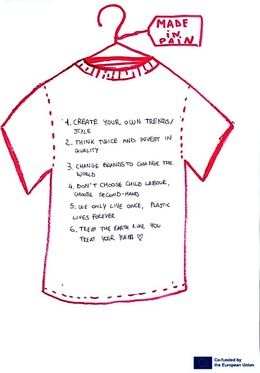 MADE
IN
PAIN
1. CREATE YOUR OWN TRENDS/
STYLE
2. THINK TWICE AND INVEST IN
QUALITY
3. CHANGE BRANDS TO CHANGE THE
WORLD
4. DON'T CHOOSE CHILD LABOUR,
CHOOSE SECOND-HAND
5. WE ONLY LIVE ONCE, PLASTIC
LIVES FOREVER
6. TREAT THE EARTH LIKE YOU
TREAT YOUR HAIR ♡
Co-funded by
the European Union